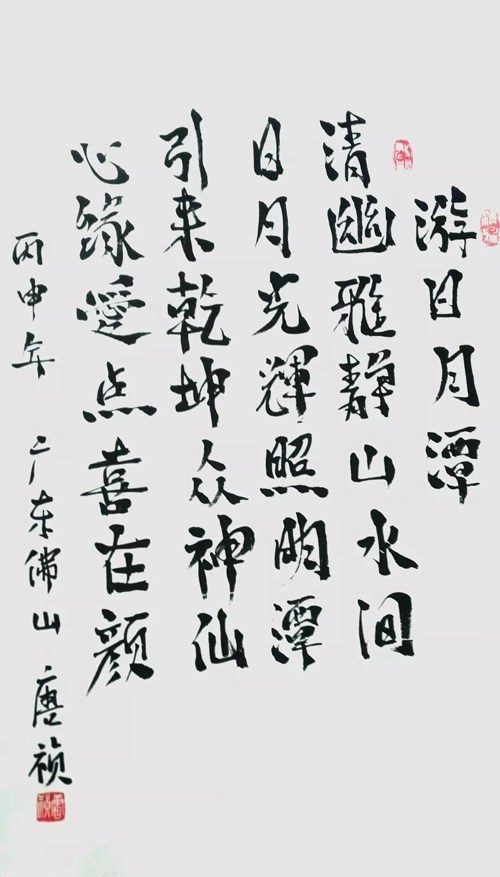 游日月潭
清幽雅静山水间
日月光輝照明潭
引来乾坤众神仙
心缘愛点喜在颜
丙申年 广东佛山 唐祯